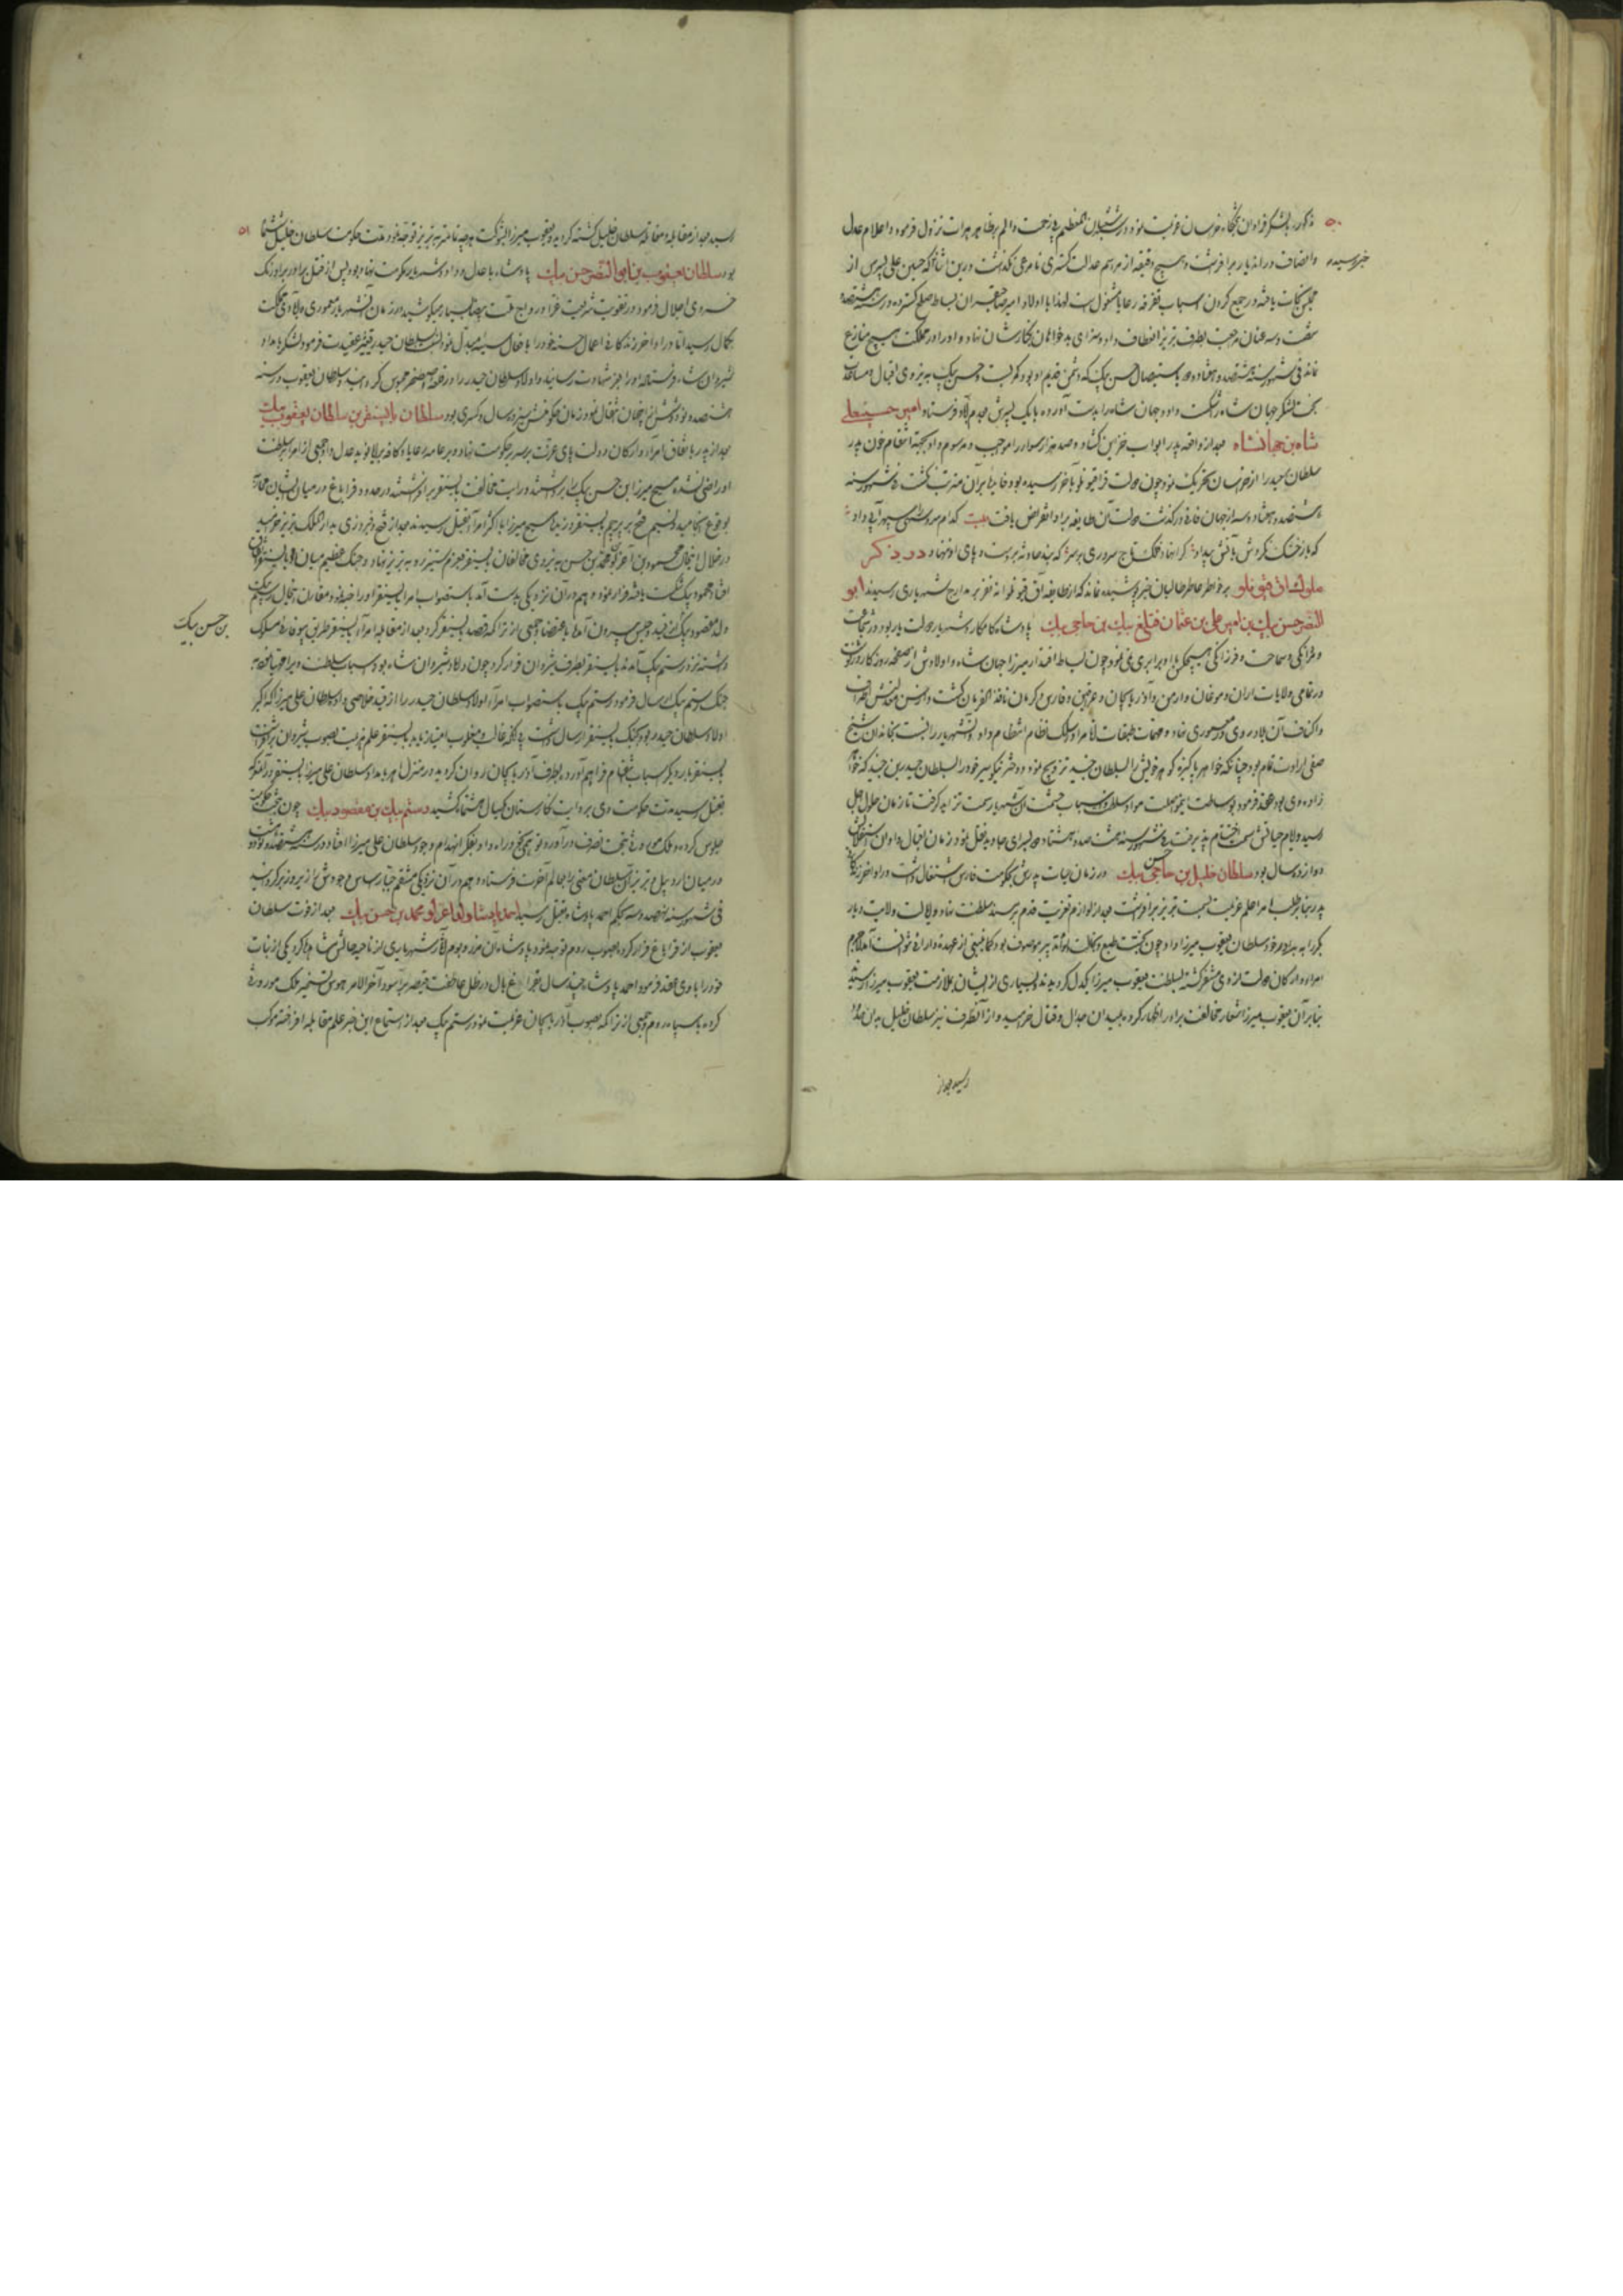 ۵۰
مذکور با لشکر فراوان بجانب خراسان عزیمت نموده در شعبان المعظم بی زحمت والم بظاهر هرات نزول فرمود و اعلام عدل
خبر رسیده
و انصاف در آن دیار برافراشت و هیچ دقیقه از مراسم عدالت گستری نامرعی نگذاشت درین اثنا که حسین علی پسرش از
مجلس نجات یافته در جمع کردن اسباب تفرقه رعایا مشغولست لهذا با اولاد امیر صاحبقران بساط صلح گسترده در سنه هشتصد
شصت و سه عنان مراجعت بطرف تبریز انعطاف داد و سزای بدخواهان بکنارشان نهاد و او را در مملکت هیچ منازع
نماند فی شهور سنه هشتصد و هفتاد و دو باستیصال حسن بیک که دشمن قدیم او بود کمر بست و حسن بیک به نیروی اقبال و مساعدت
بخت لشکر جهان شاه را شکست داد و جهان شاه را بدست آورده با یک پسرش بعدم آباد فرستاد امیر حسینعلی
شاه بن جهانشاه بعد از واقعه پدر ابواب خزاین گشاد و صد هزار سوار را مواجب و مرسوم داد و بجهة انتقام خون پدر
سلطان سعید را از خراسان تحریک نمود چون دولت قراقیونلو بآخر رسیده بود فایده بر آن مترتب نگشت فی شهور سنه
هشتصد و هفتاد و سه از جهان فانی درگذشت دولت آن طایفه براد انقراض یافت بیت کدام سرو سهی سپهر آبی داد
که باز خشک نکردش بآتش بیداد کرا نهاد فلک تاج سروری بر سر که بند حادثه بر دست و پای او ننهاد در ذکر
ملوک آق قیونلو بر خواطر عاطر طالبان خبر پوشیده نماند که از طایفه آق قیونلو نه نفر بمدارج شهریاری رسیدند ابو
النصر حسن بیک بن امیر علی بن عثمان قتلغ بیک بن حاجی بیک پادشاه کامکار و شهریار دولت یار بود در شجاعت
و مردانگی و سماحت و فرزانگی هیچکس با او برابری نمی نمود چون بساط اقتدار میرزا جهان شاه و اولادش از صفحه روزگار درنوشت
در تمامی ولایات اران و موغان و ارمن و آذربایجان و عراقین و فارس و کرمان نافذ الفرمان گشت و از حسن معدلتش اطراف
و اکناف آن بلاد روی در معموری نهاد و مهمات طبقات انام را در سلک نظام انتظام داد و آن شهریار را نسبت بخاندان شیخ
صفی ارادت تمام بود چنانکه خواهر پاکیزه گوهر خویش را بسلطان جنید تزویج نموده و دختر نیکو سیر خود را بسلطان حیدر بن جنید که خواهر
زاده وی بود عقد فرمود بوساطت این مواصلت مواد سلطنت و اسباب حشمت آن شهریار سمت تزاید گرفت تا زمان حلول اجل
رسید و ایام حیاتش سمت اختتام پذیرفت فی شهور سنه هشتصد و هشتاد و دو بسرای جاوید نقل نمود زمان اقبال و اوان استقلالش
دوازده سال بود سلطان خلیل بن حسن حاجی بیک در زمان حیات پدرش بحکومت فارس اشتغال داشت در اواخر زندگانی
پدر بنا بر طلب امرا علم عزیمت بسمت تبریز برافراشت بعد از لوازم تعزیت قدم بر مسند سلطنت نهاد و ایالت ولایت دیار
بکر را به برادر خود سلطان یعقوب میرزا داد چون
امراء و ارکان دولت از وی متنفر گشته بسلطنت یعقوب میرزا یکدل گردیدند و بسیاری از ایشان بملازمت یعقوب میرزا رسیدند
بنا بر آن یعقوب میرزا شعار مخالفت برادر اظهار کرده بمیدان جدال و قتال خرامید و از آنطرف نیز سلطان خلیل بدان حدود
رسید بعد از
۵۱
رسید بعد از مقابله و مقاتله سلطان خلیل کشته گردید و یعقوب میرزا با شوکت هر چه تمامتر به تبریز توجه نمود مدت حکومت سلطان خلیل ششماه
بود سلطان یعقوب بن ابی النصر حسن بیک پادشاه با عدل و داد و شهریار حکومت نهاد بود پس از قتل برادر بر اورنگ
خسروی اجلال فرمود در تقویت شریعت غرا و رواج ملت بیضا بسیار میکوشید در زمان آن شهریار معموری و آبادی مملکت
بکمال رسید اما در اواخر زندگانی اعمال حسنه خود را با فعال سیئه مبدل نمود نسبت بسلطان حیدر تغییر عقیدت فرمود لشکر بامداد
شیروان شاه فرستاده او را بعز شهادت رسانید و اولاد سلطان حیدر را در قلعه اصطخر محبوس گردانید و سلطان یعقوب در سنه
هشتصد و نود و شش از جهان انتقال نمود زمان حکومتش سیزده سال و کسری بود سلطان بایسنقر بن سلطان یعقوب بیک
بعد از پدر باتفاق امراء و ارکان دولت پای عزت بر سریر حکومت نهاد و بر عامه رعایا و کافه برایا نوید عدل داد جمعی از امرا بسلطنت
او راضی نشده مسیح میرزا ابن حسن بیک را برداشتند و رایت مخالفت بایسنقر برافراشتند در حدود قراباغ در میان ایشان محاربه
بوقوع انجامید و نسیم فتح بر پرچم بایسنقر وزید مسیح میرزا با اکثر امرا بقتل رسیدند بعد از فتح و فیروزی بدار الملک تبریز خرامید
در خلال اینحال محمود بن آغرلو محمد بن حسن به نیروی مخالفان بایسنقر بعزم ستیز رو به تبریز نهاد و جنگ عظیم میان او و بایسنقر اتفاق
افتاد محمود بیک شکست یافته فرار نمود و هم در آن نزدیکی بدست آمد باستصواب امرا بایسنقر او را
بن حسن بیک
ولد مقصود بیک از قید و حبس بیرون آمد
داشته نزد رستم بیک آمدند بایسنقر بطرف شروان فرار کرد چون داماد شیروان شاه بود اسباب سلطنت ویرا مهیا ساخته
جنگ رستم بیک ارسال فرمود رستم بیک باستصواب امراء اولاد سلطان حیدر را از قید خلاصی داد و سلطان علی میرزا که اکبر
اولاد سلطان حیدر بود بجنگ بایسنقر ارسال داشت
بایسنقر بار دیگر اسباب انتقام فراهم آورده بطرف آذربایجان روان گردید
بقتل رسید مدت حکومت وی بروایت نگارستان یکسال و هشتماه کشید رستم بیک بن مقصود بیک چون بر تخت حکومت
جلوس کرده
در میان اردبیل و تبریز آن سلطان معنی را بعالم آخرت فرستاد و هم در آن نزدیکی منتقم جبار اساس وجودش را زیر و زبر گردانید
فی شهور سنه نهصد و سه بحکم احمد پادشاه بقتل رسید احمد پادشاه ولد اغرلو محمد بن حسن بیک بعد از فوت سلطان
یعقوب از قراباغ فرار کرده بصوب روم توجه نمود پادشاه آن مرز و بوم آثار شهریاری از ناصیه حالش مشاهده کرد یکی از بنات
خود را با وی عقد فرمود احمد پادشاه چند سال بفراغ بال در ظل عاطفت قیصر بر آسود آخر الامر هوس تسخیر ملک موروثی
کرده با سپاه روم و جمعی از تراکمه بصوب آذربایجان عزیمت نمود رستم بیک بعد از استماع این خبر علم مقابله افراخته موکب